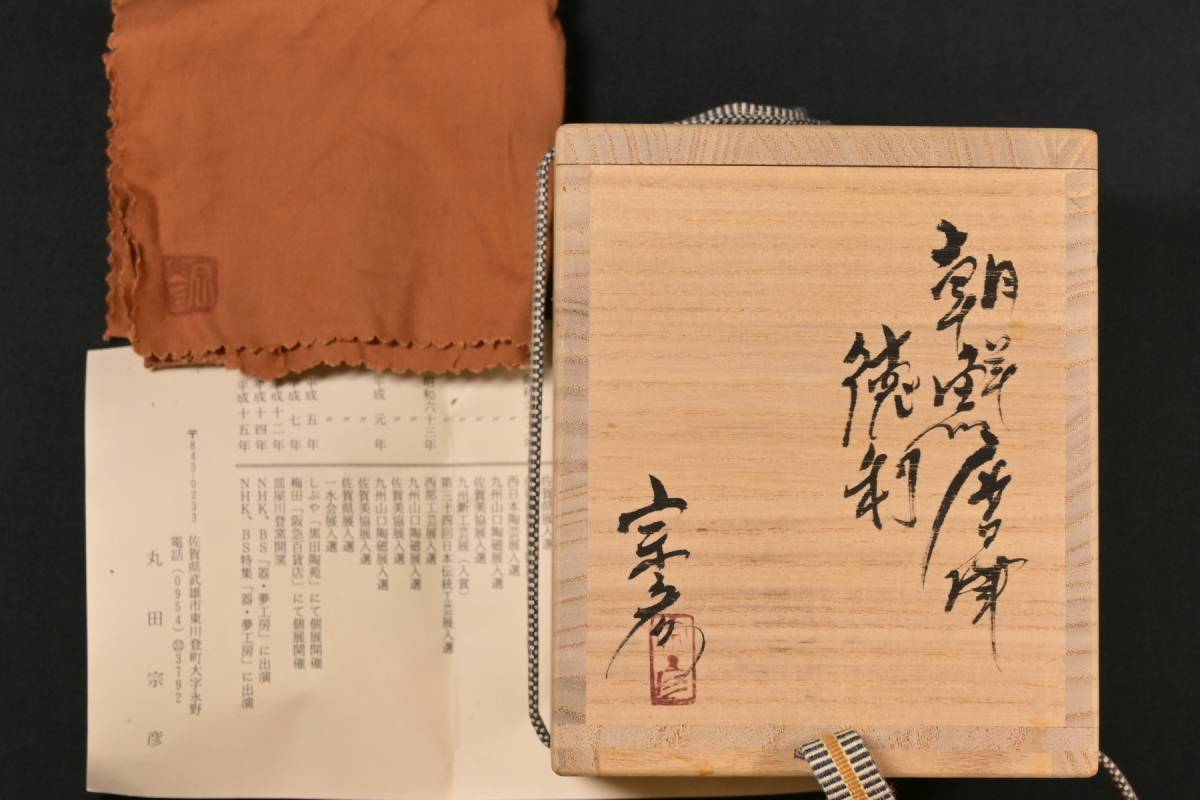 朝鮮唐津
徳利
宗彦
西日本陶芸展入選
九州山口陶磁展入選
佐賀美協展入選
九州新工芸展（入賞）
第三十四回日本伝統工芸展入選
昭和六十三年 西部工芸展入選
〃 九州山口陶磁展入選
〃 佐賀美協展入選
平成元年 九州山口陶磁展入選
〃 佐賀美協展入選
〃 佐賀県展入選
〃 一水会展入選
平成五年 しぶや「黒田陶苑」にて個展開催
平成七年 梅田「阪急百貨店」にて個展開催
平成十二年 皿屋川登窯開窯
平成十四年 NHK、BS「器・夢工房」に出演
平成十五年 NHK、BS特集「器・夢工房」に出演
〒843-0233 佐賀県武雄市東川登町大字永野
電話（0954）㉓3792
丸田宗彦